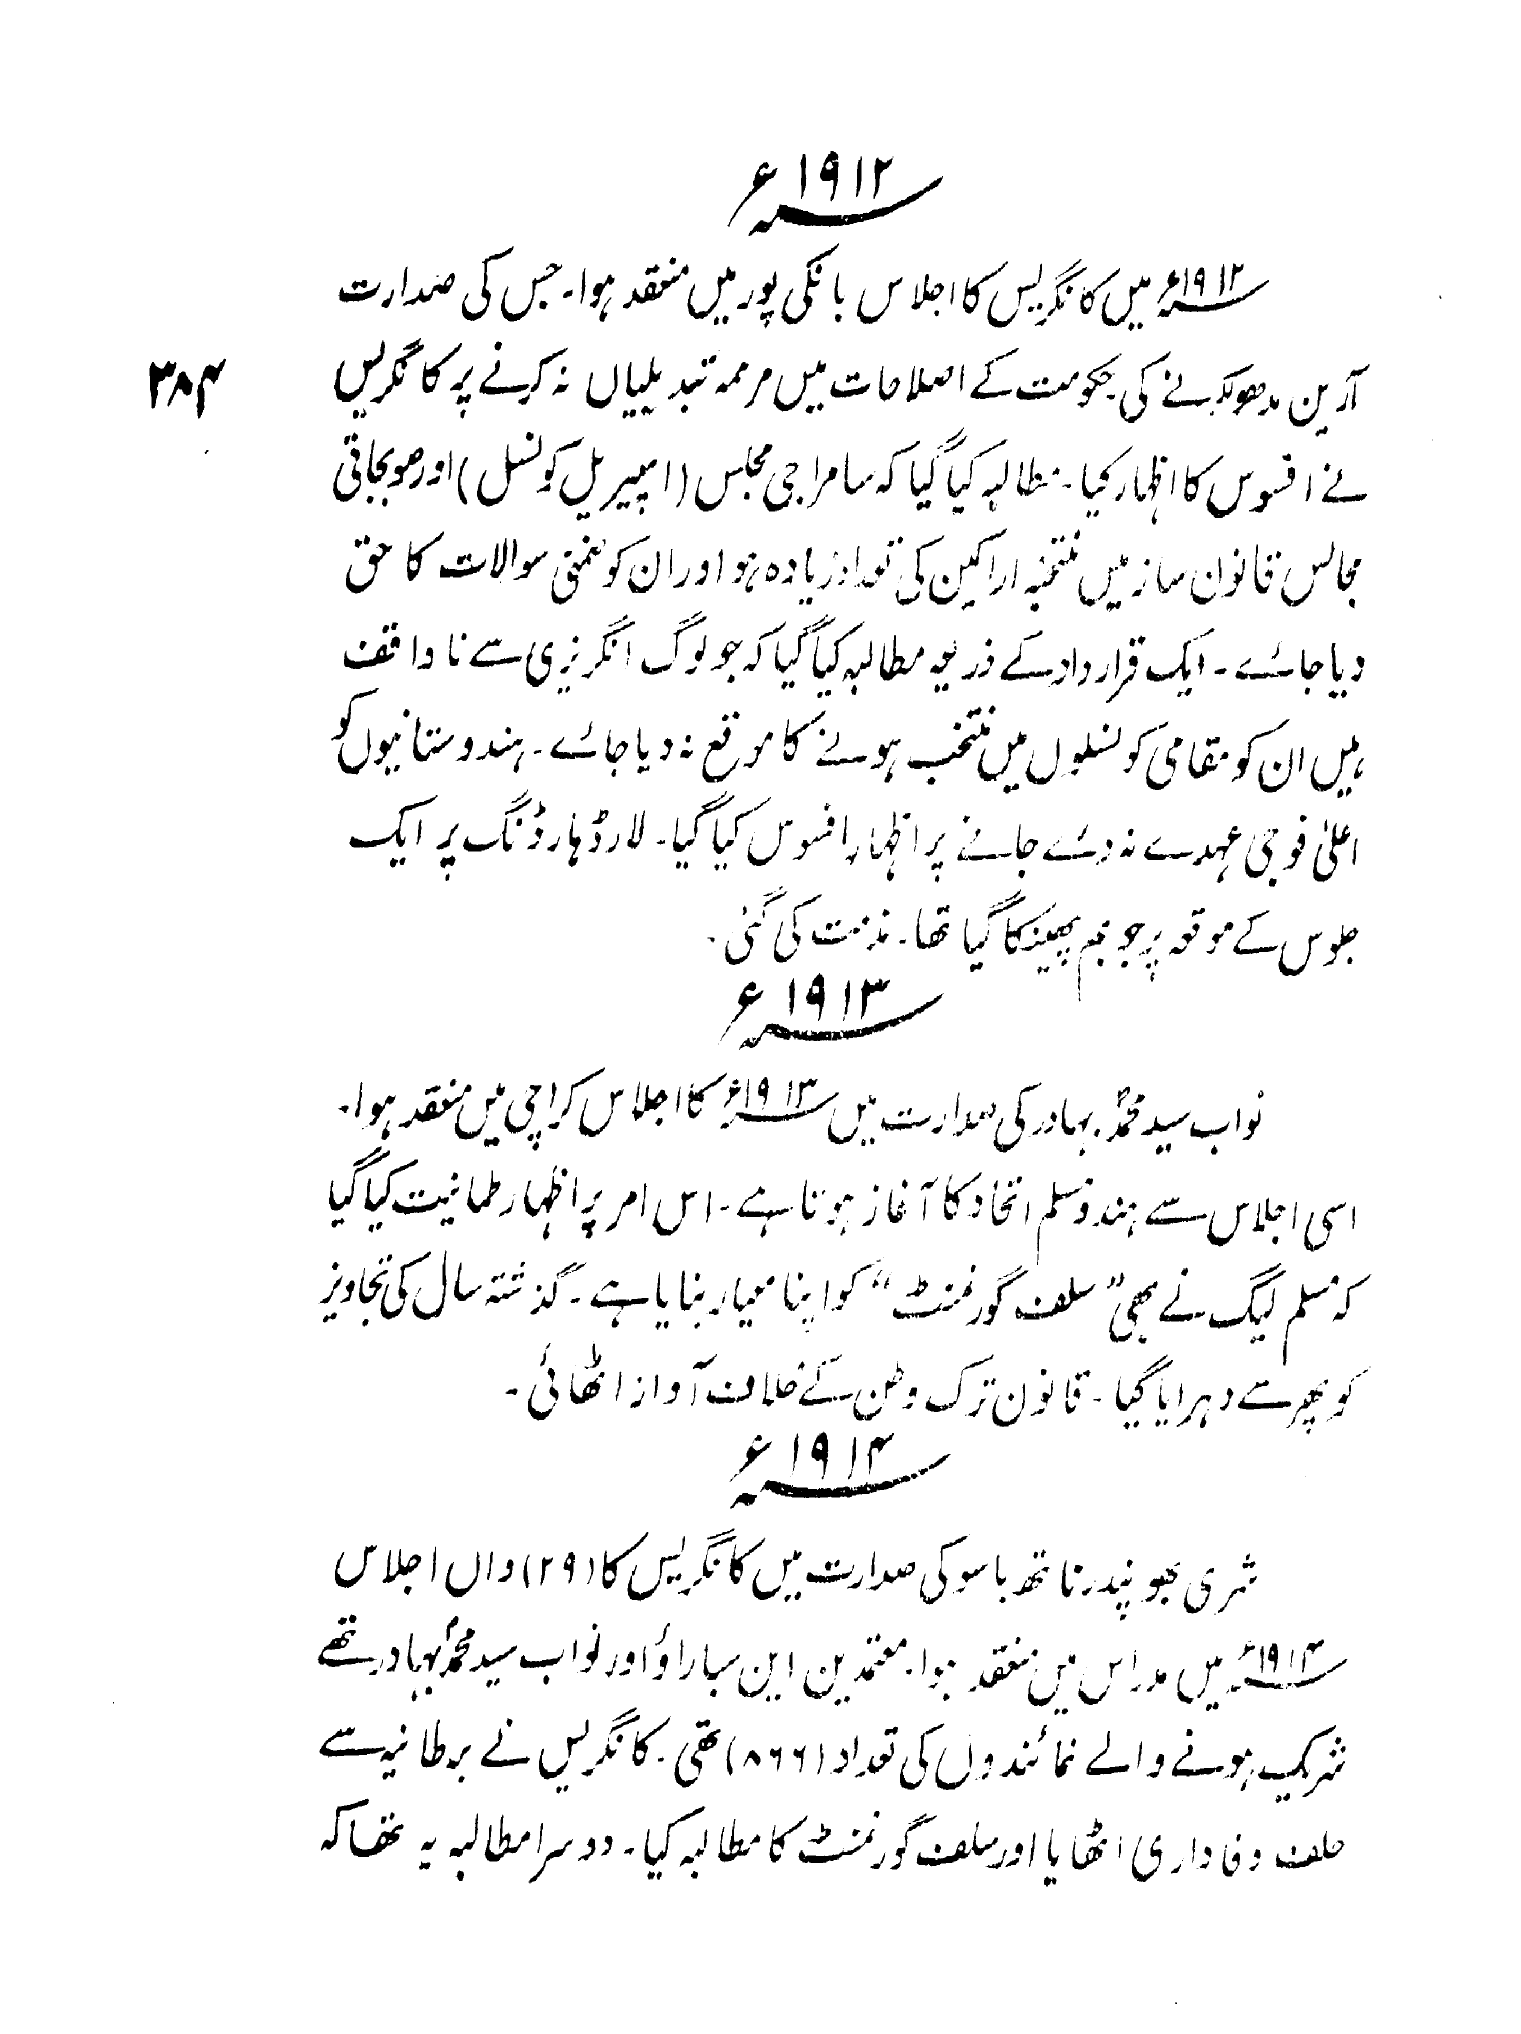 ۱۹۱۲ء
۱۹۱۲ء میں کانگریس کا اجلاس بانکی پور میں منعقد ہوا۔ جس کی صدارت
آرین مدھولکر نے کی۔ حکومت کے اصلاحات میں مرممہ تبدیلیاں نہ کرنے پر کانگریس
۳۸۴
نے افسوس کا اظہار کیا۔ مطالبہ کیا گیا کہ سامراجی مجلس (امپیریل کونسل) اور صوبجاتی
مجالس قانون ساز میں منتخبہ اراکین کی تعداد زیادہ ہو اور ان کو ضمنی سوالات کا حق
دیا جائے۔ ایک قرار داد کے ذریعہ مطالبہ کیا گیا کہ جو لوگ انگریزی سے ناواقف
ہیں ان کو مقامی کونسلوں میں منتخب ہونے کا موقع نہ دیا جائے۔ ہندوستانیوں کو
اعلیٰ فوجی عہدے نہ دئے جانے پر اظہار افسوس کیا گیا۔ لارڈ ہارڈنگ پر ایک
جلوس کے موقعہ پر جو بم پھینکا گیا تھا۔ مذمت کی گئی۔
۱۹۱۳ء
نواب سید محمدؐ بہادر کی صدارت میں ۱۹۱۳ء کا اجلاس کراچی میں منعقد ہوا۔
اسی اجلاس سے ہندو مسلم اتحاد کا آغاز ہوتا ہے۔ اس امر پر اظہار طمانیت کیا گیا
کہ مسلم لیگ نے بھی ”سلف گورنمنٹ“ کو اپنا معیار بنایا ہے۔ گذشتہ سال کی تجاویز
کو پھر سے دہرایا گیا۔ قانون ترک وطن کے خلاف آواز اٹھائی۔
۱۹۱۴ء
شری بھوپندر ناتھ باسو کی صدارت میں کانگریس کا (۲۹) واں اجلاس
۱۹۱۴ء میں مدراس میں منعقد ہوا۔ معتمدین این سباراؤ اور نواب سید محمدؐ بہادر تھے
شریک ہونے والے نمائندوں کی تعداد (۸۶۶) تھی۔ کانگریس نے برطانیہ سے
حلف وفاداری اٹھایا اور سلف گورنمنٹ کا مطالبہ کیا۔ دوسرا مطالبہ یہ تھا کہ